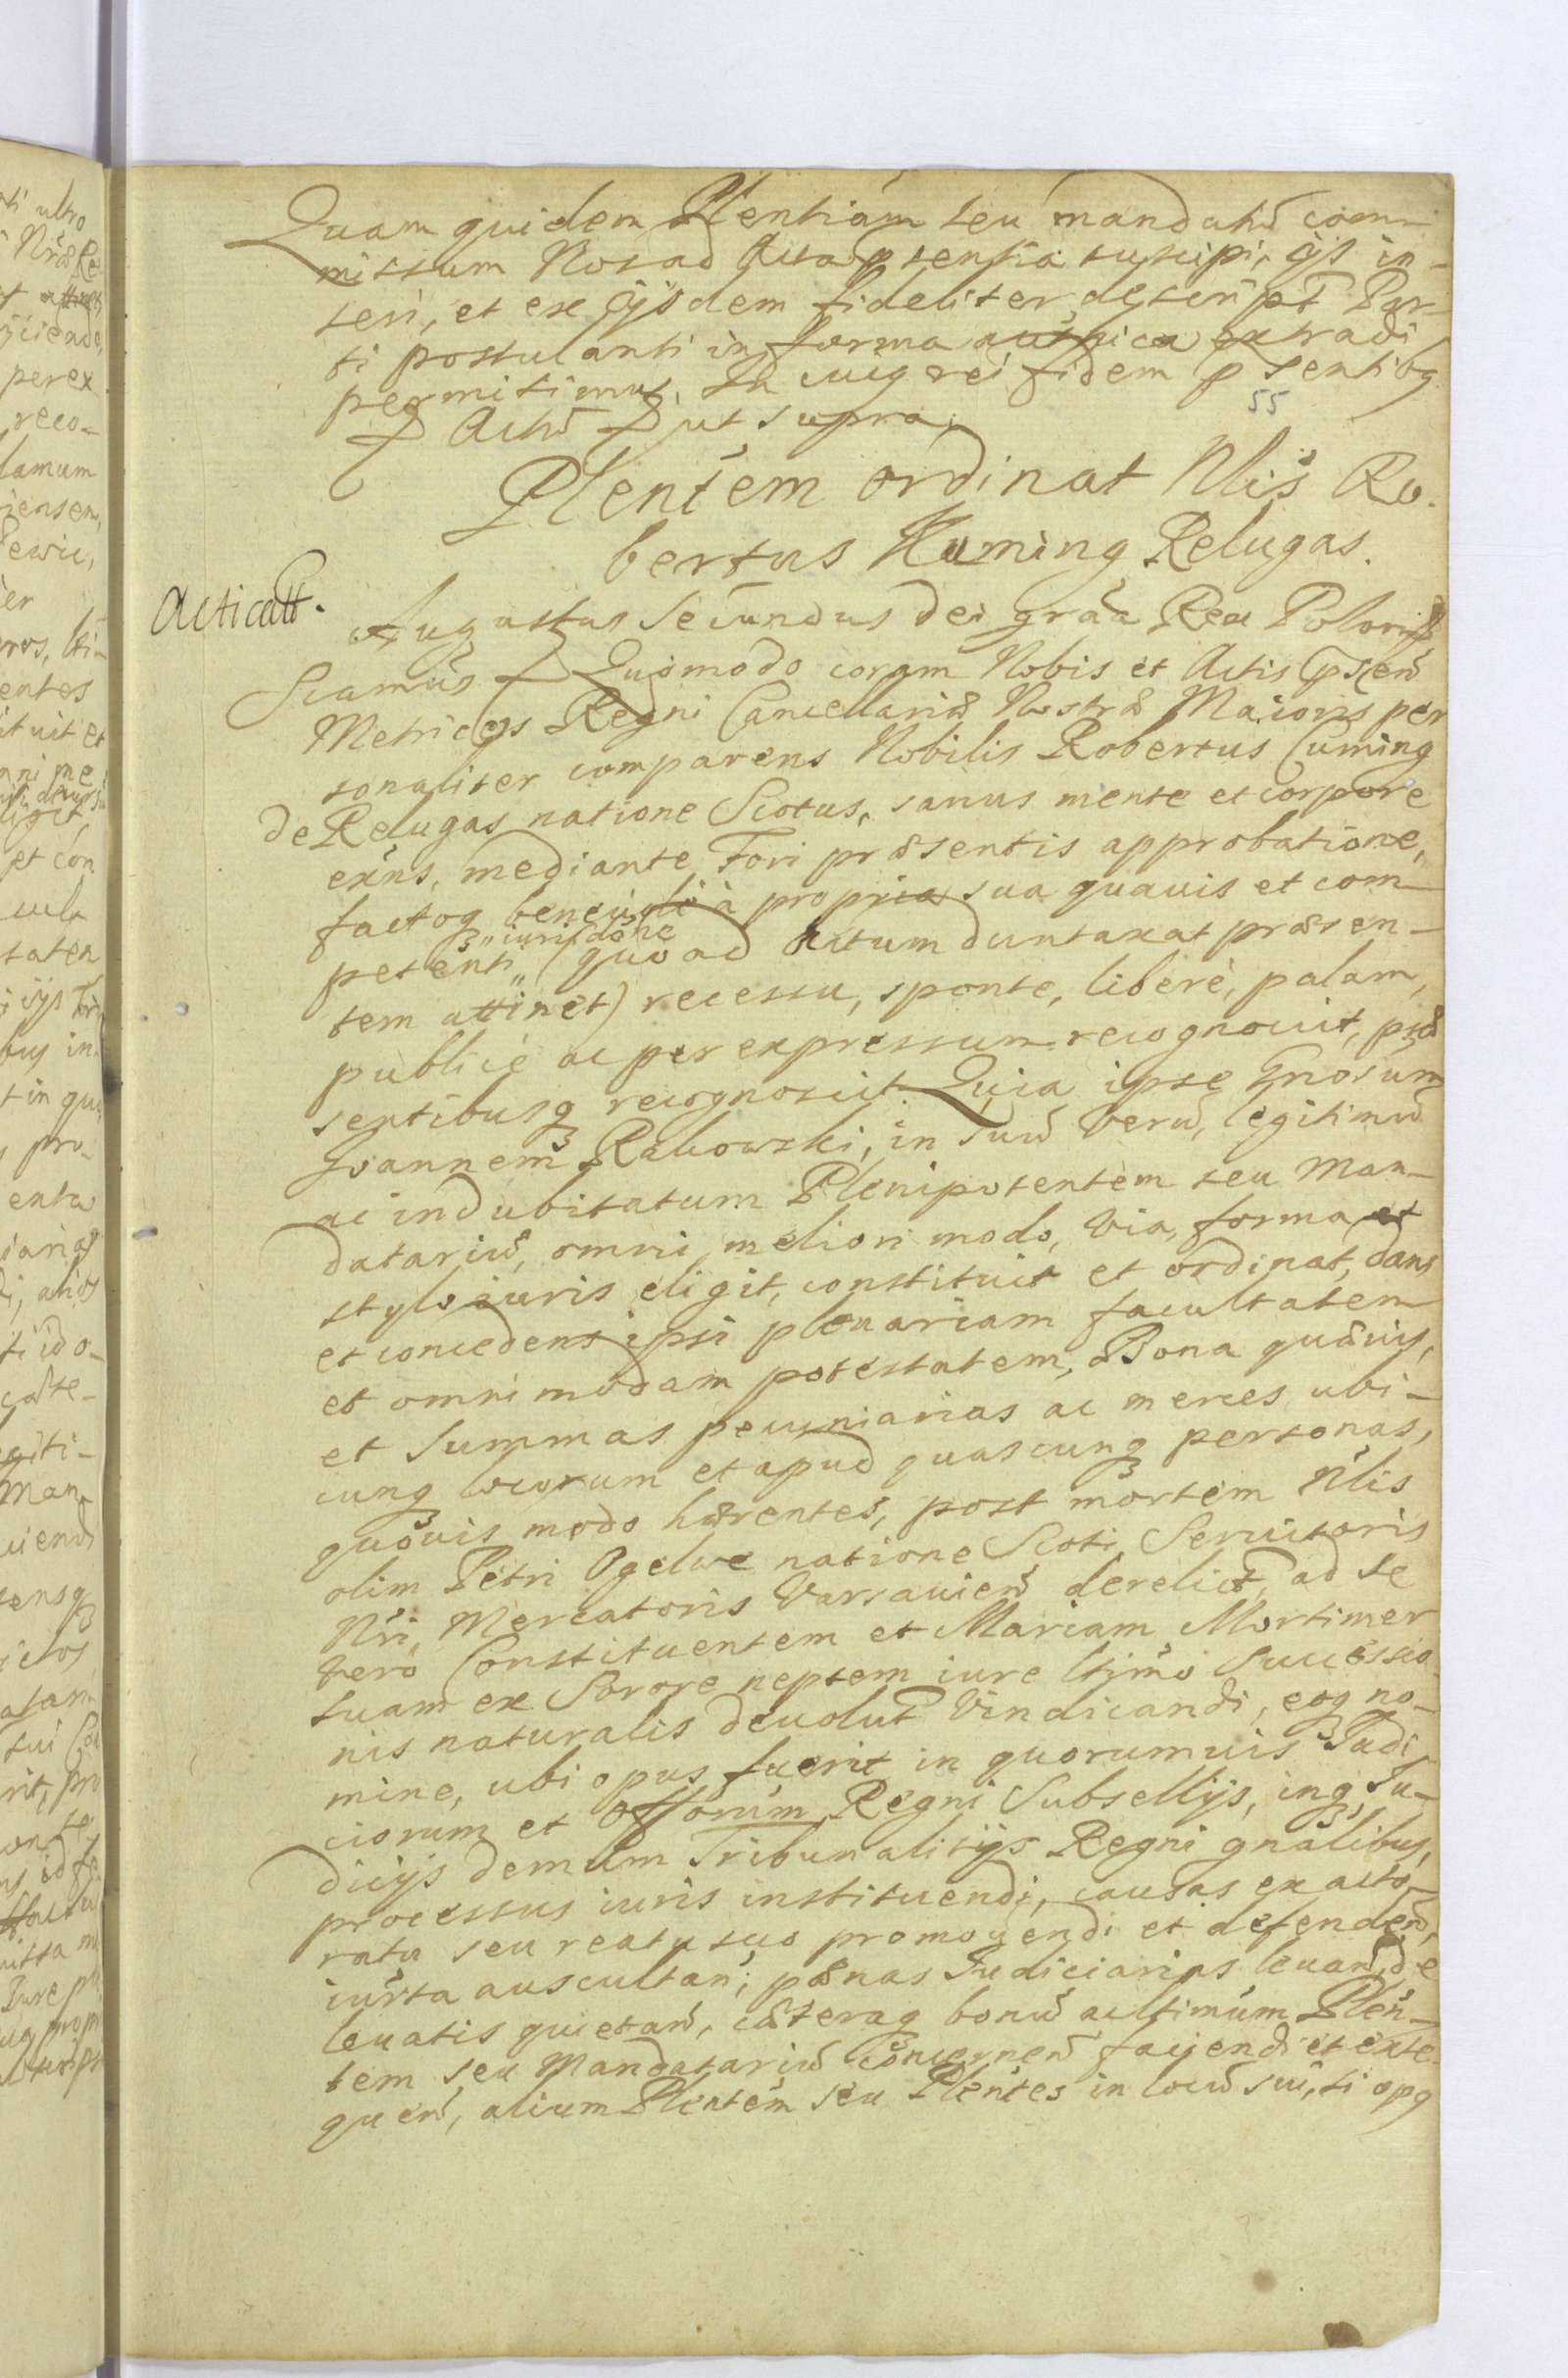 Quam quidem Plentiam seu mandatũ com-
missum Nos ad Acta p̃sentia suscipi, ijs in-
seri, et ex ijsdem fideliter descript Par-
ti postulanti in forma authica extradi
permisimus. In cuiq rei fidem p̃sentibq
55
Actũ ut supra.
Plentem ordinat Nlis Ro-
bertus Kuming Relugas.
Acticatt.
Augustus Secundus Dei grãa Rex Poloniæ
Sciamus Quomodo coram Nobis et Actis p̃sen̄
Metrices Regni Cancellariæ Nostræ Maioris per
sonaliter comparens Nobilis Robertus Cuming
de Relugas natione Scotus, sanus mente et corpore
exn̄s, mediante Fori præsentis approbatione,
factoq beneuolè à propria sua quauis et com-
petenti "iurisdõne" (quo ad Actum duntaxat præsen-
tem attinet) recessu, sponte, liberè, palam,
publicè ac per expressum recognouit, præ
sentibusq recognoscit. Quia ipse Gnosum
Joannem Rakowski, in suũ verũ, legitimũ
ac indubitatum Plenipotentem seu Man-
datariũ, omni meliori modo, via, forma et
stylo iuris eligit, constituit et ordinat, dans
et concedens ipsi plenariam facultatem
et omnimodam potestatem, Bona quævis,
et Summas pecuniarias ac merces ubi-
cunq locorum et apud quascunq personas,
quovis modo hærentes, post mortem Nlis
olim Petri Ogelwe natione Scoti, Seruitoris
Nri, Mercatoris Varsauien̄ derelict, ad se
vero Constituentem et Mariam Mortimer
suam ex Sorore neptem iure ltimo Successio-
nis naturalis deuolut vindicandi, eoq no-
mine, ubi opus fuerit in quorumuis Judi
ciorum et Offorum Regni Subsellijs, inq Ju-
dicijs demum Tribunalitijs Regni gnalibus,
processus iuris instituendi, causas ex acto-
ratu seu reatu suo promouendi et defenden̄,
iurta auscultan̄, pænas Judiciarias leuan̄, de
leuatis quietan̄, cæteraq bonũ ac ltimum Plen-
tem seu Mandatariũ concernen̄ faciendi et exe-
quen̄, alium Plentem seu Plentes in locũ sui, si opq